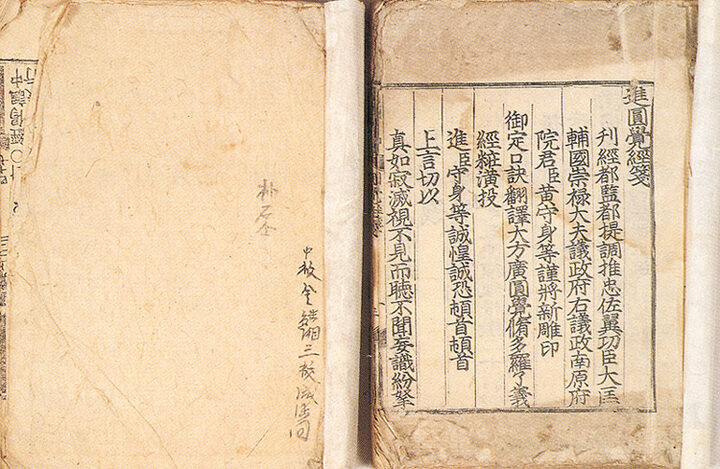 進圓覺經箋
刊經都監都提調推忠佐翼功臣大匡
輔國崇祿大夫議政府右議政南原府
院君臣黃守身等謹將新雕印
御定口訣翻譯大方廣圓覺脩多羅了義
經粧潢投
進臣守身等誠惶誠恐頓首頓首
上言切以
真如寂滅視不見而聽不聞妄識紛拏
三校
朴石